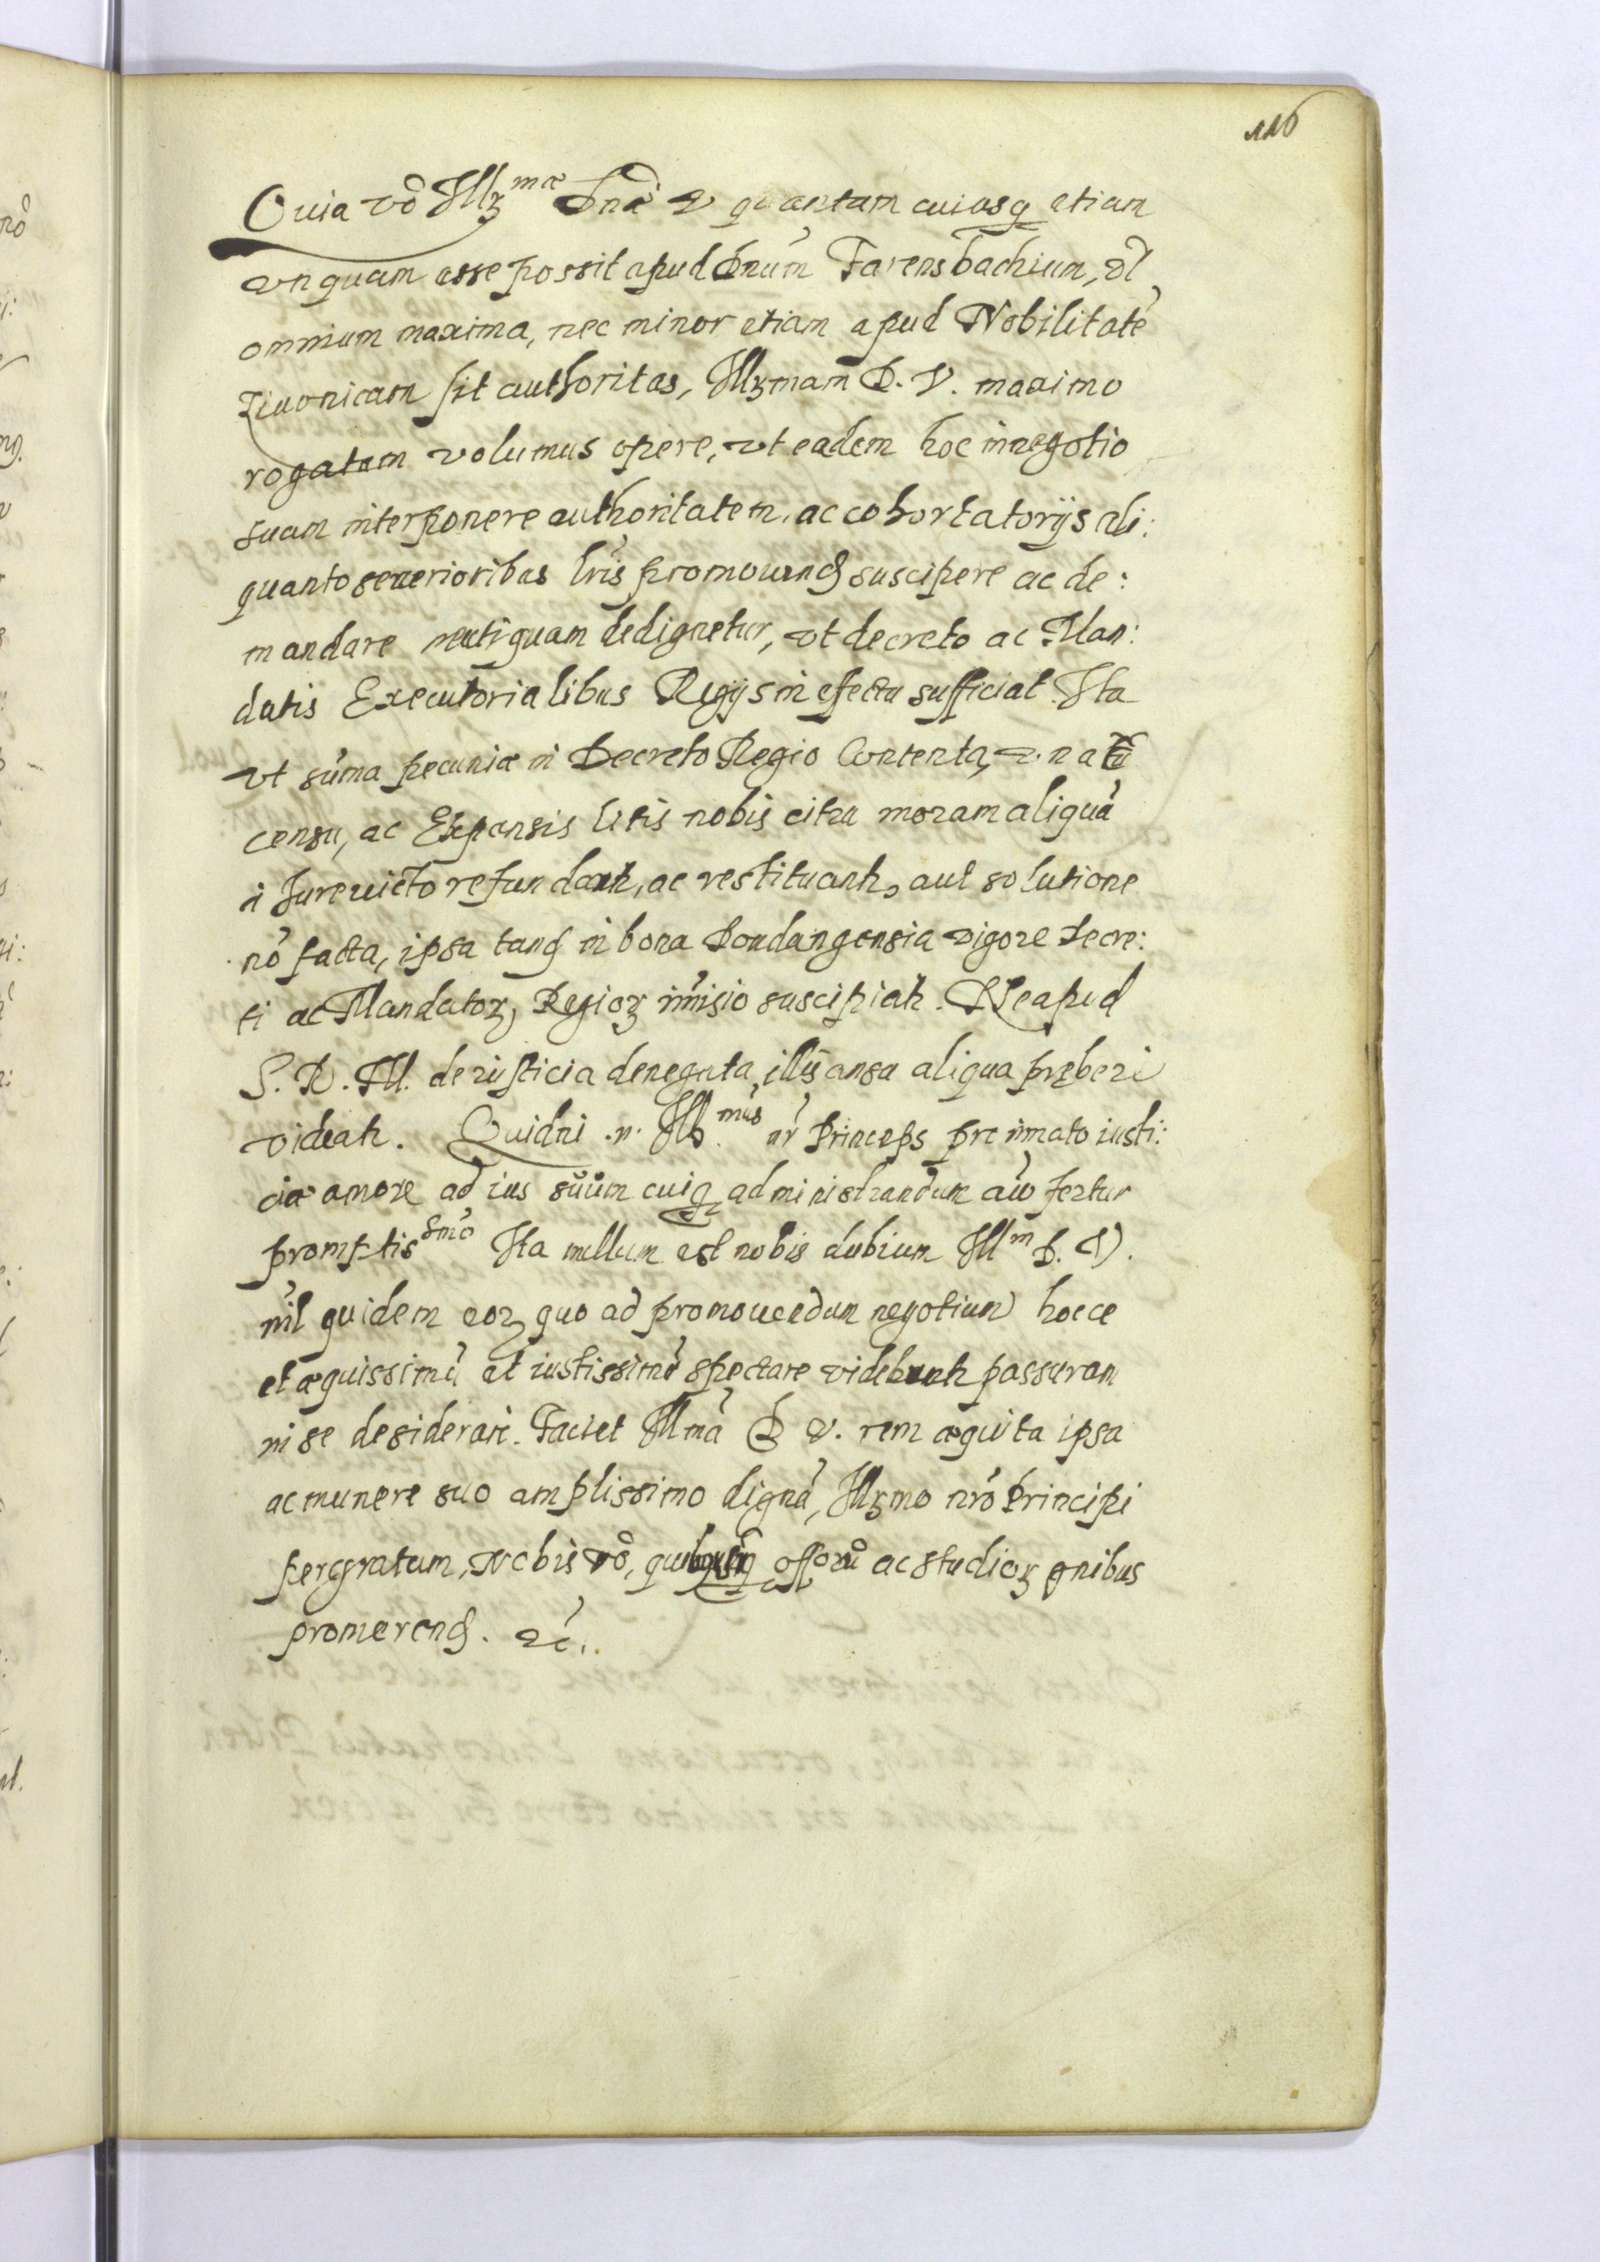 116
Quia vo Illꝫmæ Dnæ V quantam cuiusq etiam
vnquam esse possit apud Dnum Farensbachium, vl
omnium maxima, nec minor etiam apud Nobilitate
Liuonicam sit authoritas, Illꝫmam D. V. maximo
rogatam volumus opere, vt eadem hoc in negotio
suam interponere authoritatem, ac cohortatorijs ali:
quanto seuerioribus lris promouend suscipere ac de:
mandare neutiquam dedignetur, vt decreto ac Man:
datis Executorialibus Regijs in effectu sufficiat. Ita
vt suma pecuniæ in Decreto Regio Contenta, v. na cū
censu, ac Expensis litis nobis citra moram aliquā
à Jureuicto refundant, ac restituant, aut solutione
nō facta, ipsa tand in bona Dondangensia vigore Decre:
ti ac Mandatoꝝ Regioꝝ imisio suscipiat. Ne apud
S. R. M. de iusticia denegata, illis ansa aliqua pręberi
videat. Quidni .n. Ill.mus nr Princeps pre innato iusti:
ciæ amore ad ius suum cuiq administrandum aio fertur
promptissmo Ita nullum est nobis dubium Illm D. V.
nil quidem eoꝝ quo ad promouendum negotium hocce
et æquissimū et iustissimū spectare videbunt passuram
in se desiderari. Faciet Illma D V. rem æquita ipsa
ac munere suo amplissimo dignā, Illꝫmo nro Principi
pergratam, Nobis vo, offorū ac studioꝝ onibus
promerend. ec.